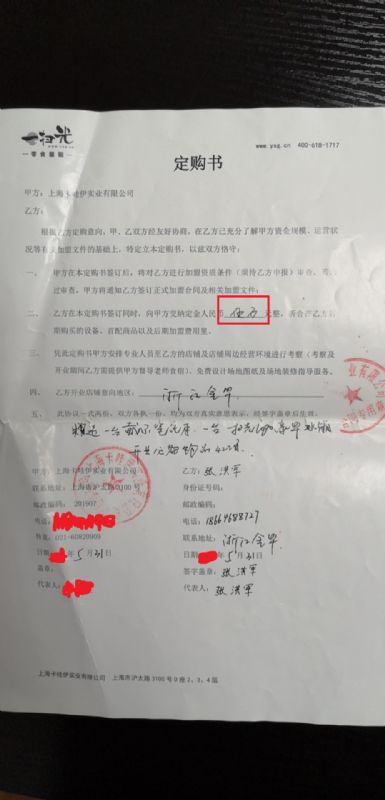 一扫光
一零食量贩一
www.ysg.cn 400-618-1717
定购书
甲方：上海卡哇伊实业有限公司
乙方：
根据乙方定购意向，甲、乙双方经友好协商，在乙方已充分了解甲方资金规模、运营状
况等有关加盟文件的基础上，特定立本定购书，以兹双方恪守：
一、 甲方在本定购书签订后，将对乙方进行加盟资质条件（须待乙方申报）审查，
过审查，甲方将通知乙方签订正式加盟合同及相关加盟文件；
二、 乙方在本定购书签订同时，向甲方交纳定金人民币 伍万 元整，
期购买的设备、首配商品以及后期加盟费用里。
三、 凭此定购书甲方安排专业人员至乙方的店铺及店铺周边经营环境进行考察（考察及
开业期间乙方需提供甲方督导老师食宿）、免费设计场地图纸及场地装修指导服务。
四、 乙方开业店铺意向地区：浙江金华
五、 此协议一式两份，双方各执一份，均为双方真实意思表示，经签字盖章后生效。
甲方：上海卡哇伊实业有限公司
乙方：张洪军
联系地址：上海市沪太路3100号
身份证号码：
邮政编码：201907
邮政编码：
电话：
电话：18664688727
传真：021-60820909
联系地址：浙江金华
日期 年5月31日
日期 年5月31日
盖章：
签字盖章：张洪军
代表人：
代表人：张洪军
上海卡哇伊实业有限公司 上海市沪太路3100号D座2、3、4层